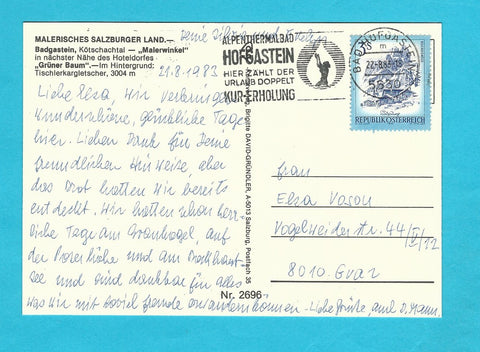 MALERISCHES SALZBURGER LAND.—
Badgastein, Kötschachtal — „Malerwinkel"
in nächster Nähe des Hoteldorfes
„Grüner Baum".—Im Hintergrund:
Tischlerkargletscher, 3004 m
21.8.1983
Liebe Elsa, wir verbringen
wunderschöne, gemütliche Tage
hier. Lieben Dank für Deine
freundlichen Hinweise, aber
das Dorf hatten wir bereits
entdeckt. Wir hatten schon herr-
liche Tage am Graukogel, auf
der
und am
see und sind dankbar für alles
was wir mit soviel Freude
können - Liebe Grüße, auch v. Mann.
Deine Silvia und
ALPENTHERMALBAD
HOFGASTEIN
HIER ZÄHLT DER
URLAUB DOPPELT
KUR-ERHOLUNG
BAD HOFGASTEIN
22.-8.83-18
5630
REPUBLIK ÖSTERREICH
Brigitte DAVID-GRÜNDLER, A-5013 Salzburg, Postfach 35
Nr. 2696
Frau
Elsa Vason
Vogelweiderstr. 44/IV/12
8010 Graz